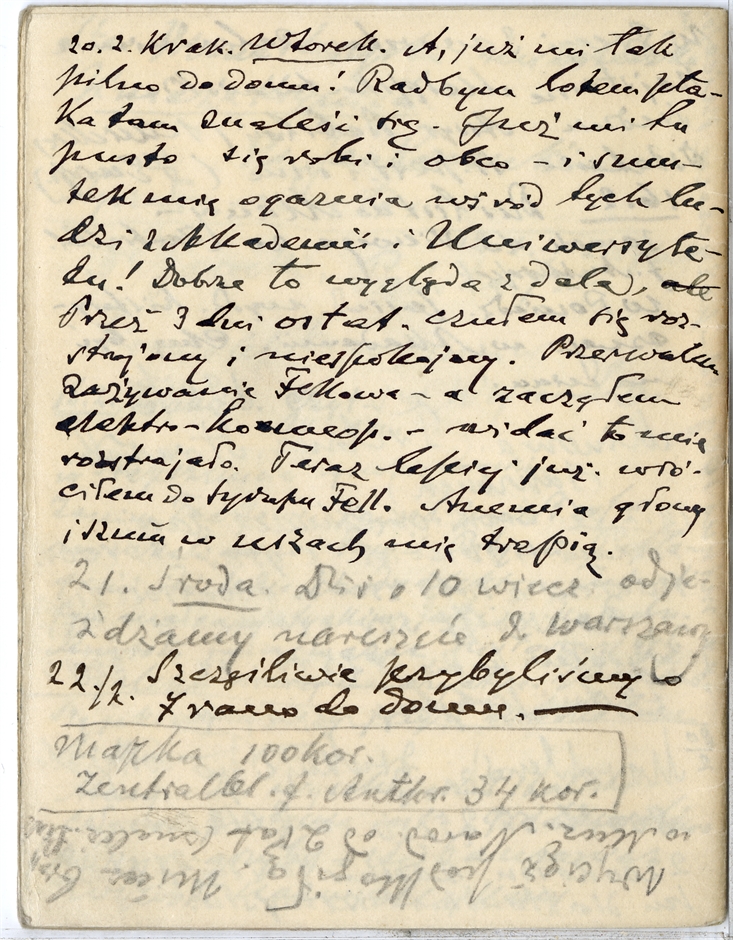 20. 2. Krak. Wtorek. A, już mi tak
pilno do domu! Radbym lotem pta-
ka tam znaleść się. Już mi tu
pusto się robi i obco - i smu-
tek mię ogarnia wśród tych lu-
dzi z Akademii i Uniwersyte-
tu! Dobrze to wygląda z dala, ale
Przez 3 dni ostat. czułem się roz-
strojony i niespokojny. Przerwałem
zażywanie Fellowa - a zacząłem
elektro-homeop. - widać to mię
rozstrajało. Teraz lepiej już. wró-
ciłem do syropu Fell. Anemia głowy
i szum w uszach mię trapią.
21. Środa. Dziś o 10 wiecz. odje-
żdżamy nareszcie do Warszawy
22./2. Szczęśliwie przybyliśmy o
7 rano do domu.
Majka 100 kor.
Zentralbl. f. Anthr. 34 kor.
w Muz. Narod. od 2 lat
Wyciąć